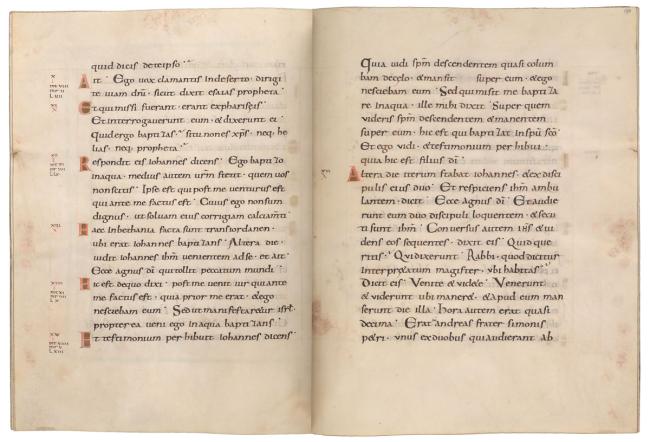 quid dicis de te ipso
Ait Ego uox clamantis in deserto dirigi
te uiam dni sicut dixit esaias propheta
Et qui missi fuerant erant ex pharisęis
Et interrogauerunt eum & dixerunt ei
Quid ergo baptizas si tu non es xps neq; he
lias neq; propheta
Respondit eis iohannes dicens Ego baptizo
in aqua medius autem urm stetit quem uos
non scitis Ipse est qui post me uenturus est
qui ante me factus est Cuius ego non sum
dignus ut soluam eius corrigiam calciamti
Haec in bethania facta sunt trans iordanen
ubi erat iohannes baptizans Altera die
uidit iohannes ihm uenientem ad se et ait
Ecce agnus di qui tollit peccatum mundi
hic est de quo dixi post me uenit uir qui ante
me factus est quia prior me erat & ego
nesciebam eum Sed ut manifestaretur isrl
propterea ueni ego in aqua baptizans
Et testimonium perhibuit iohannes dicens
Quia uidi spm descendentem quasi colum
bam de celo & mansit super eum & ego
nesciebam eum Sed qui misit me baptiza
re in aqua ille mihi dixit Super quem
videris spm descendentem & manentem
super eum hic est qui baptizat in spu sco
Et ego vidi & testimonium perhibui
quia hic est filius di
Altera die iterum stabat iohannes & ex disci
pulis eius duo Et respiciens ihm ambu
lantem dicit Ecce agnus di Et audie
runt eum duo discipuli loquentem & secu
ti sunt ihm Conuersus autem ihs & ui
dens eos sequentes dixit eis Quid que
ritis Qui dixerunt Rabbi quod dicitur
interpr&atum magister ubi habitas
Dicit eis Venite & uid&e Venerunt
& viderunt ubi maner& & apud eum man
serunt die illa hora autem erat quasi
decima Erat andreas frater simonis
p&ri vnus ex duobus qui audierant ab